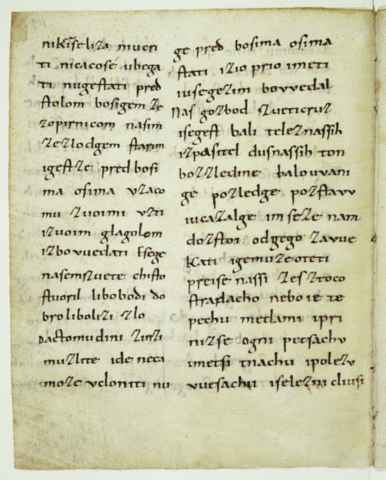 nikiſeliza niucri
ti nicacoſe ubega
ti nugeſtati pred
ſtolom boſigem ze
zopirnicom naſim
zezlodgem ſtarim
igeſtze pred boſi
ma oſima vzaco
mu zuoimi vzti
izuoim glagolom
izbovuedati Eſege
naſemzuete chiſto
ſtuoril libobodi do
bro liboliſi zlo
Dactomudini zinzi
muzlite ide neca
moze ucloniti nu
ge pred boſima oſima
ſtati izio prio imeti
iuſegezim bovvedal
Naſ gozbod zueticruz
iſegeſt bali teleznaſſih
izpaſitel duſnaſſih ton
bozzledine balouvani
ge pozledge poztavv
iucazalge imſeze nam
dozſtoi odgego zavue
Kati igemuzeoteti
preiſe naſſi zeztoco
ſtradacho nebo ie te
pechu metlami ipri
nizſe ogni petſachv
imetſi tnachu ipolezv
vueſachu iſelezni cliuſi